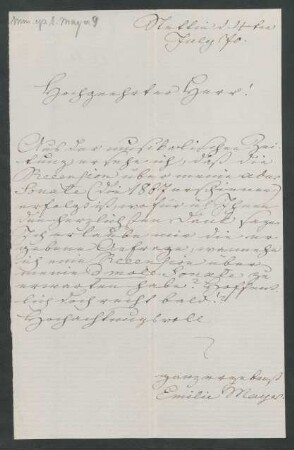 Mus. ep. E. Mayer 9
Stettin d. 5 ten
July 70.
Hochgeehrter Herr!
Aus der musikalischen Zei-
tung ersehe ich, daß die
Recension über meine a dur
Sonate (die 1867 erschienen)
erfolgt ist, wofür ich Ihnen
den herzlichsten Dank sage.
Ich erlaube mir die er-
gebene Anfrage, wann
ich eine Recension über
meine D moll Sonate, zu
erwarten habe? Hoffent-
lich doch recht bald!
Hochachtungsvoll
ganz ergebenst
Emilie Mayer